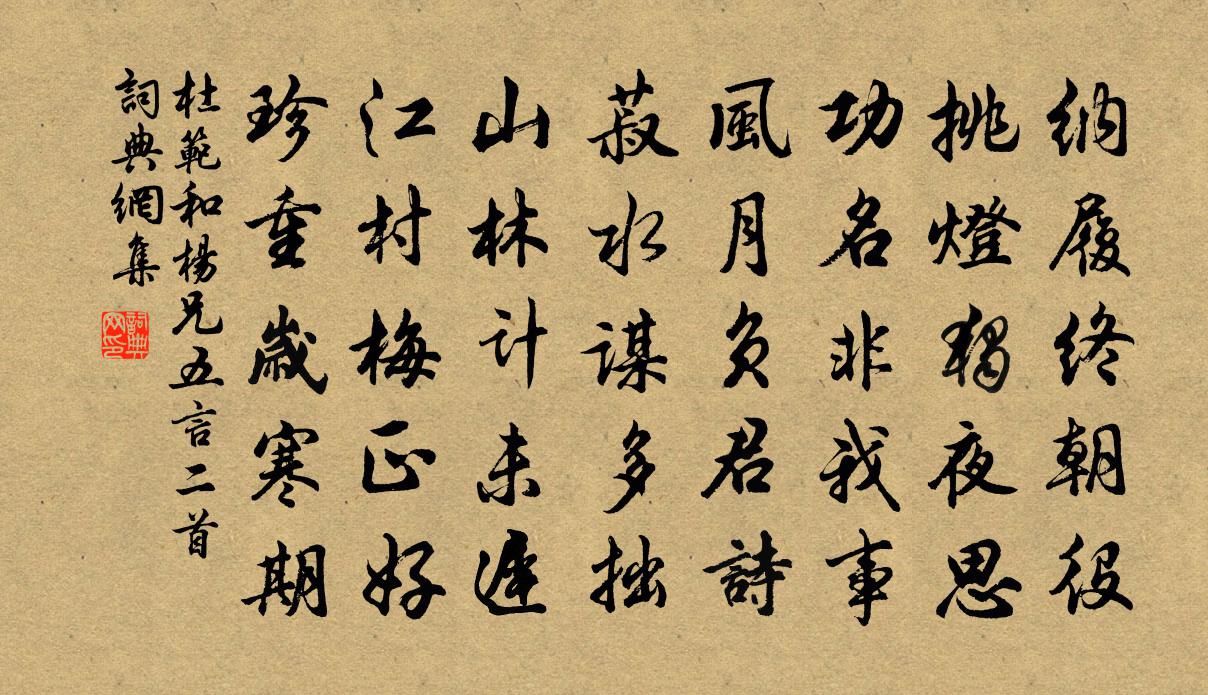 納履終朝役
挑燈獨夜思
功名非我事
風月負君詩
菽水謀多拙
山林計未遲
江村梅正好
珍重歲寒期
杜範和楊兄五言二首
詞典網集
詞典网印